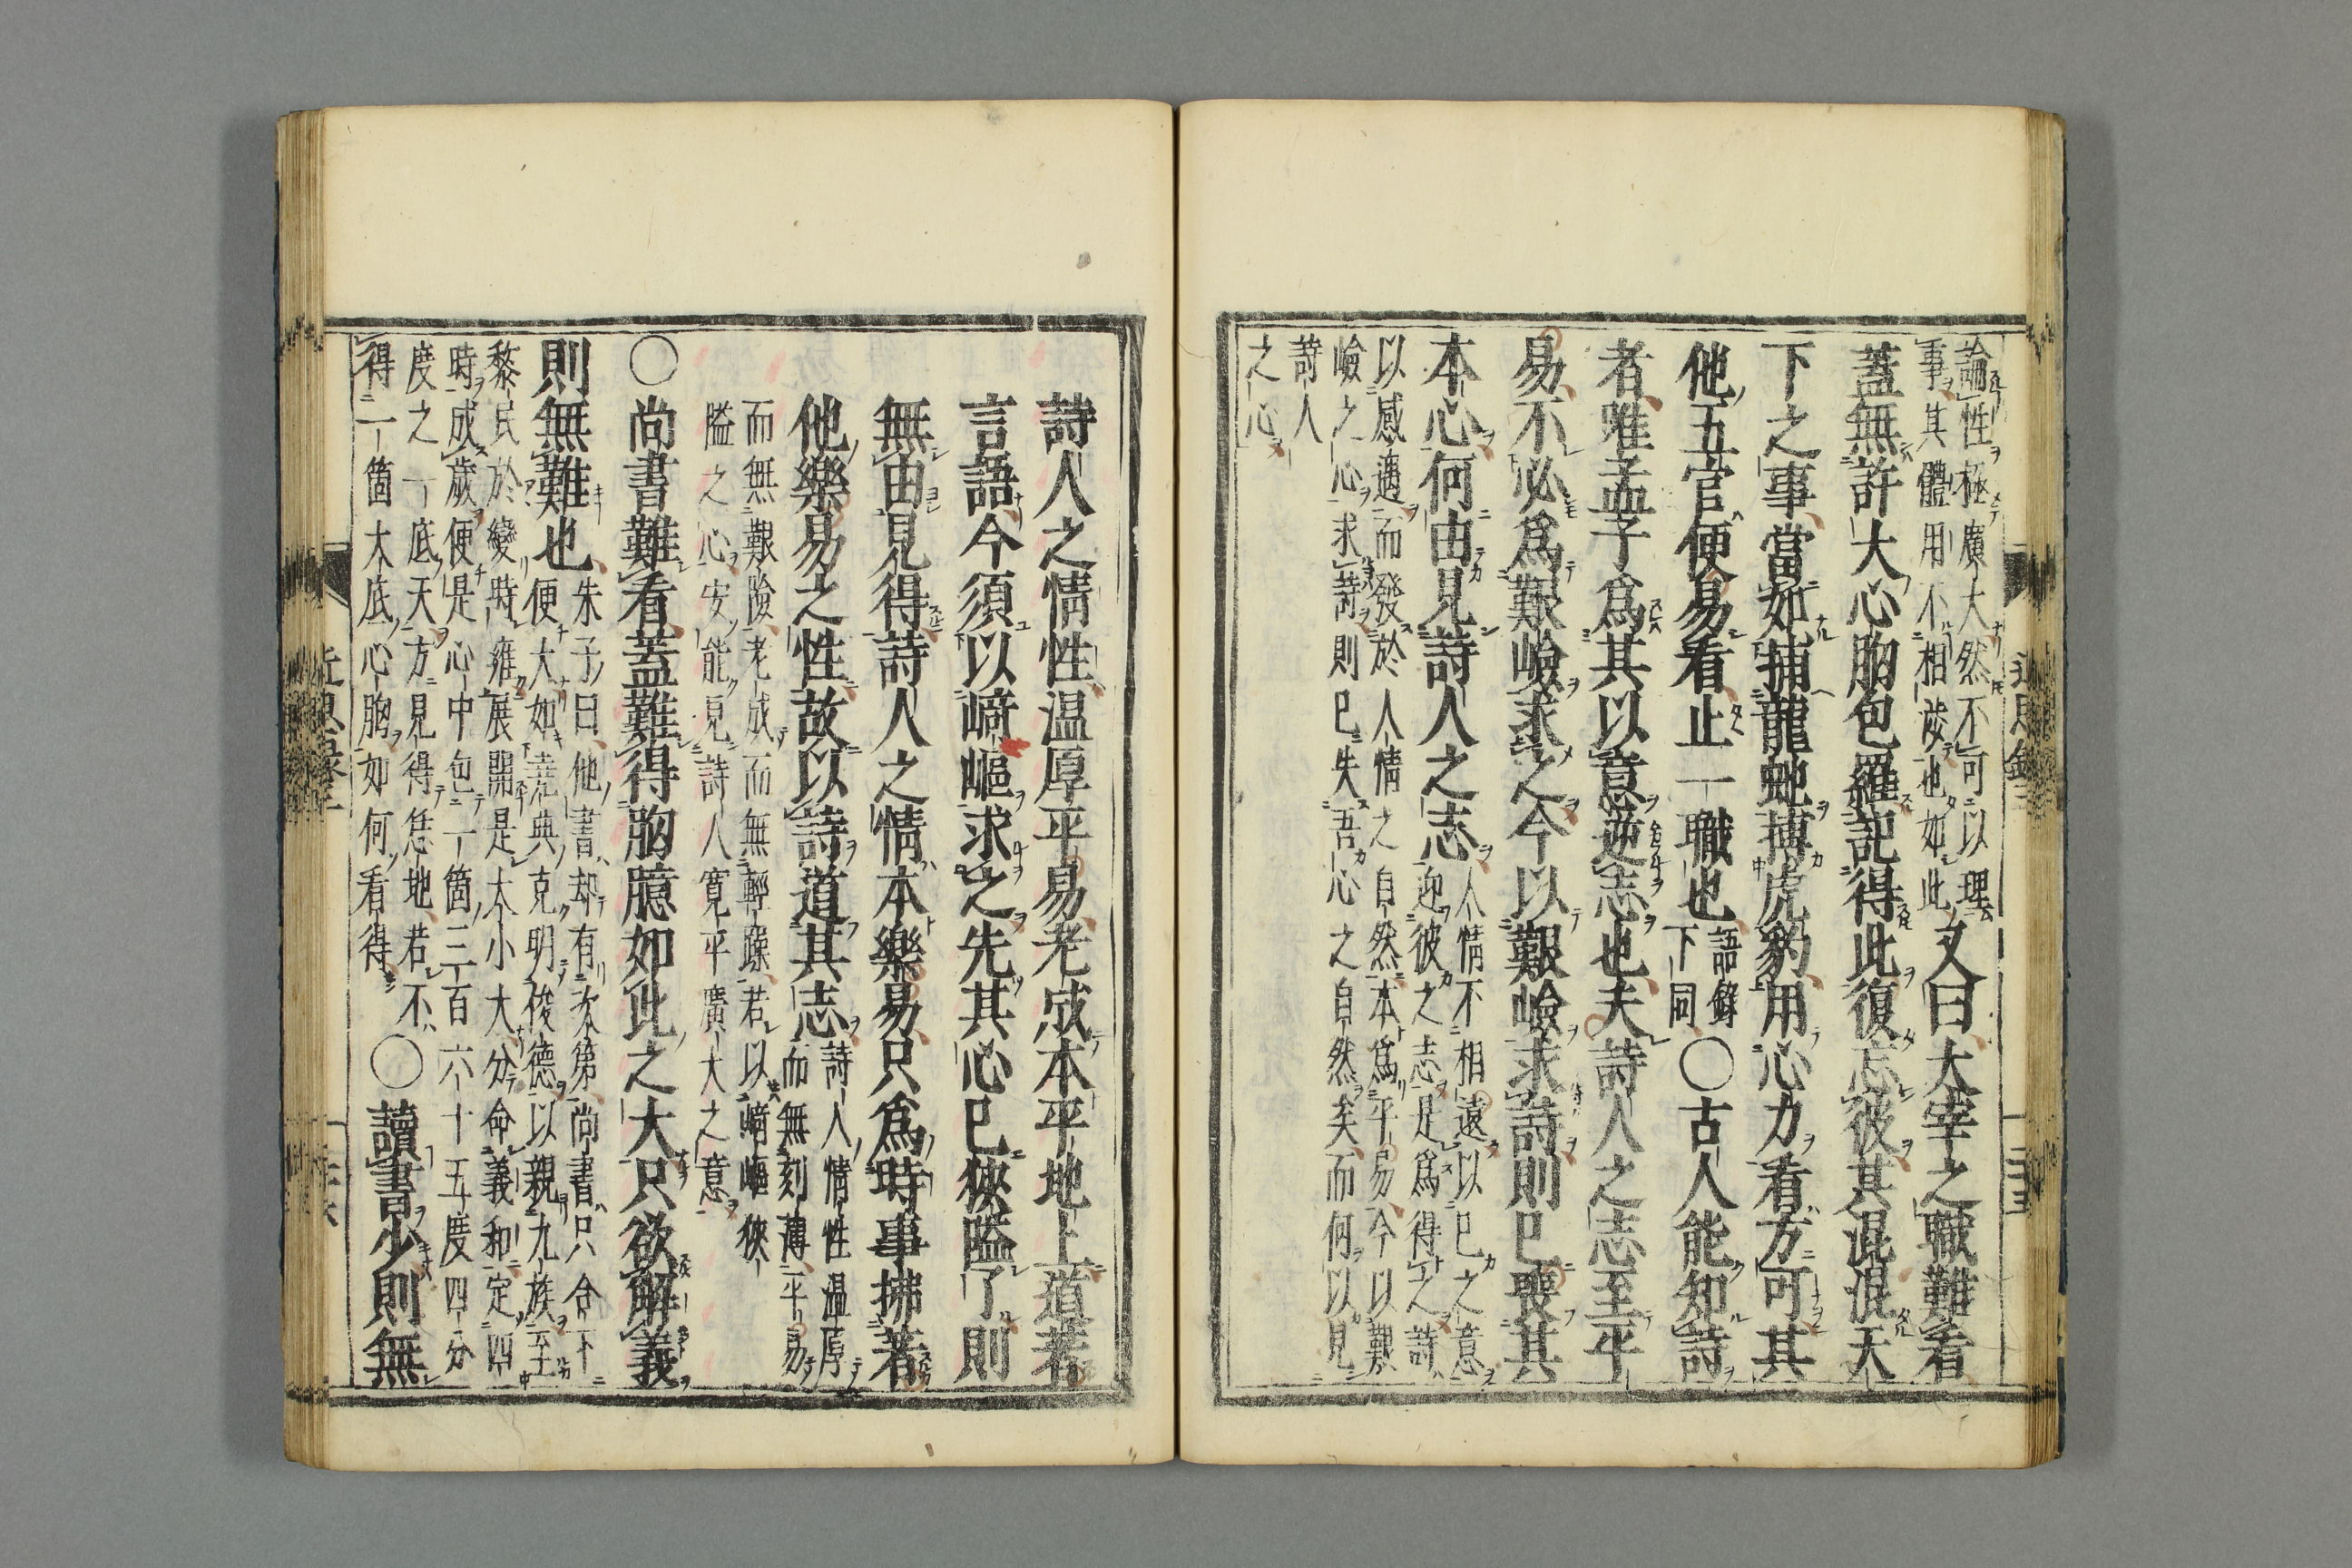 論性極廣大然不可以理
事其體用不相涉也如此
又曰大宰之職難看
蓋無許大心胸包羅記得此復忘彼其混混天
下之事當如捕龍蛇搏虎豹用心力看方可其
他五官便易看止一職也
語錄
下同
〇古人能知詩
者唯孟子爲其以意逆志也夫詩人之志至平
易不必爲艱嶮求之今以艱嶮求詩則已喪其
本心何由見詩人之志
人情不相遠以已之意
迎彼之志是爲得之詩
以感遇而發於人情之自然本爲平易今以艱
嶮之心求詩則已失吾心之自然矣而何以見
詩人
之心
詩人之情性温厚平易老成本平地上道著
言語今須以﨑嶇求之先其心已狹隘了則
無由見得詩人之情本樂易只爲時事拂著
他樂易之性故以詩道其志
詩人情性温厚
而無刻薄平易
而無艱險老成而無輕躁若以﨑嶇狹
隘之心安能見詩人寛平廣大之意
〇尚書難看蓋難得胸臆如此之大只欲解義
則無難也
朱子曰他書却有次第尚書只合下
便大如堯典克明俊德以親九族至
黎民於變時雍展開是大小大分命羲和定四
時成歲便是心中包一箇三百六十五度四分
度之一底天方見得恁地若不
得一箇大底心胸如何看得
〇讀書少則無